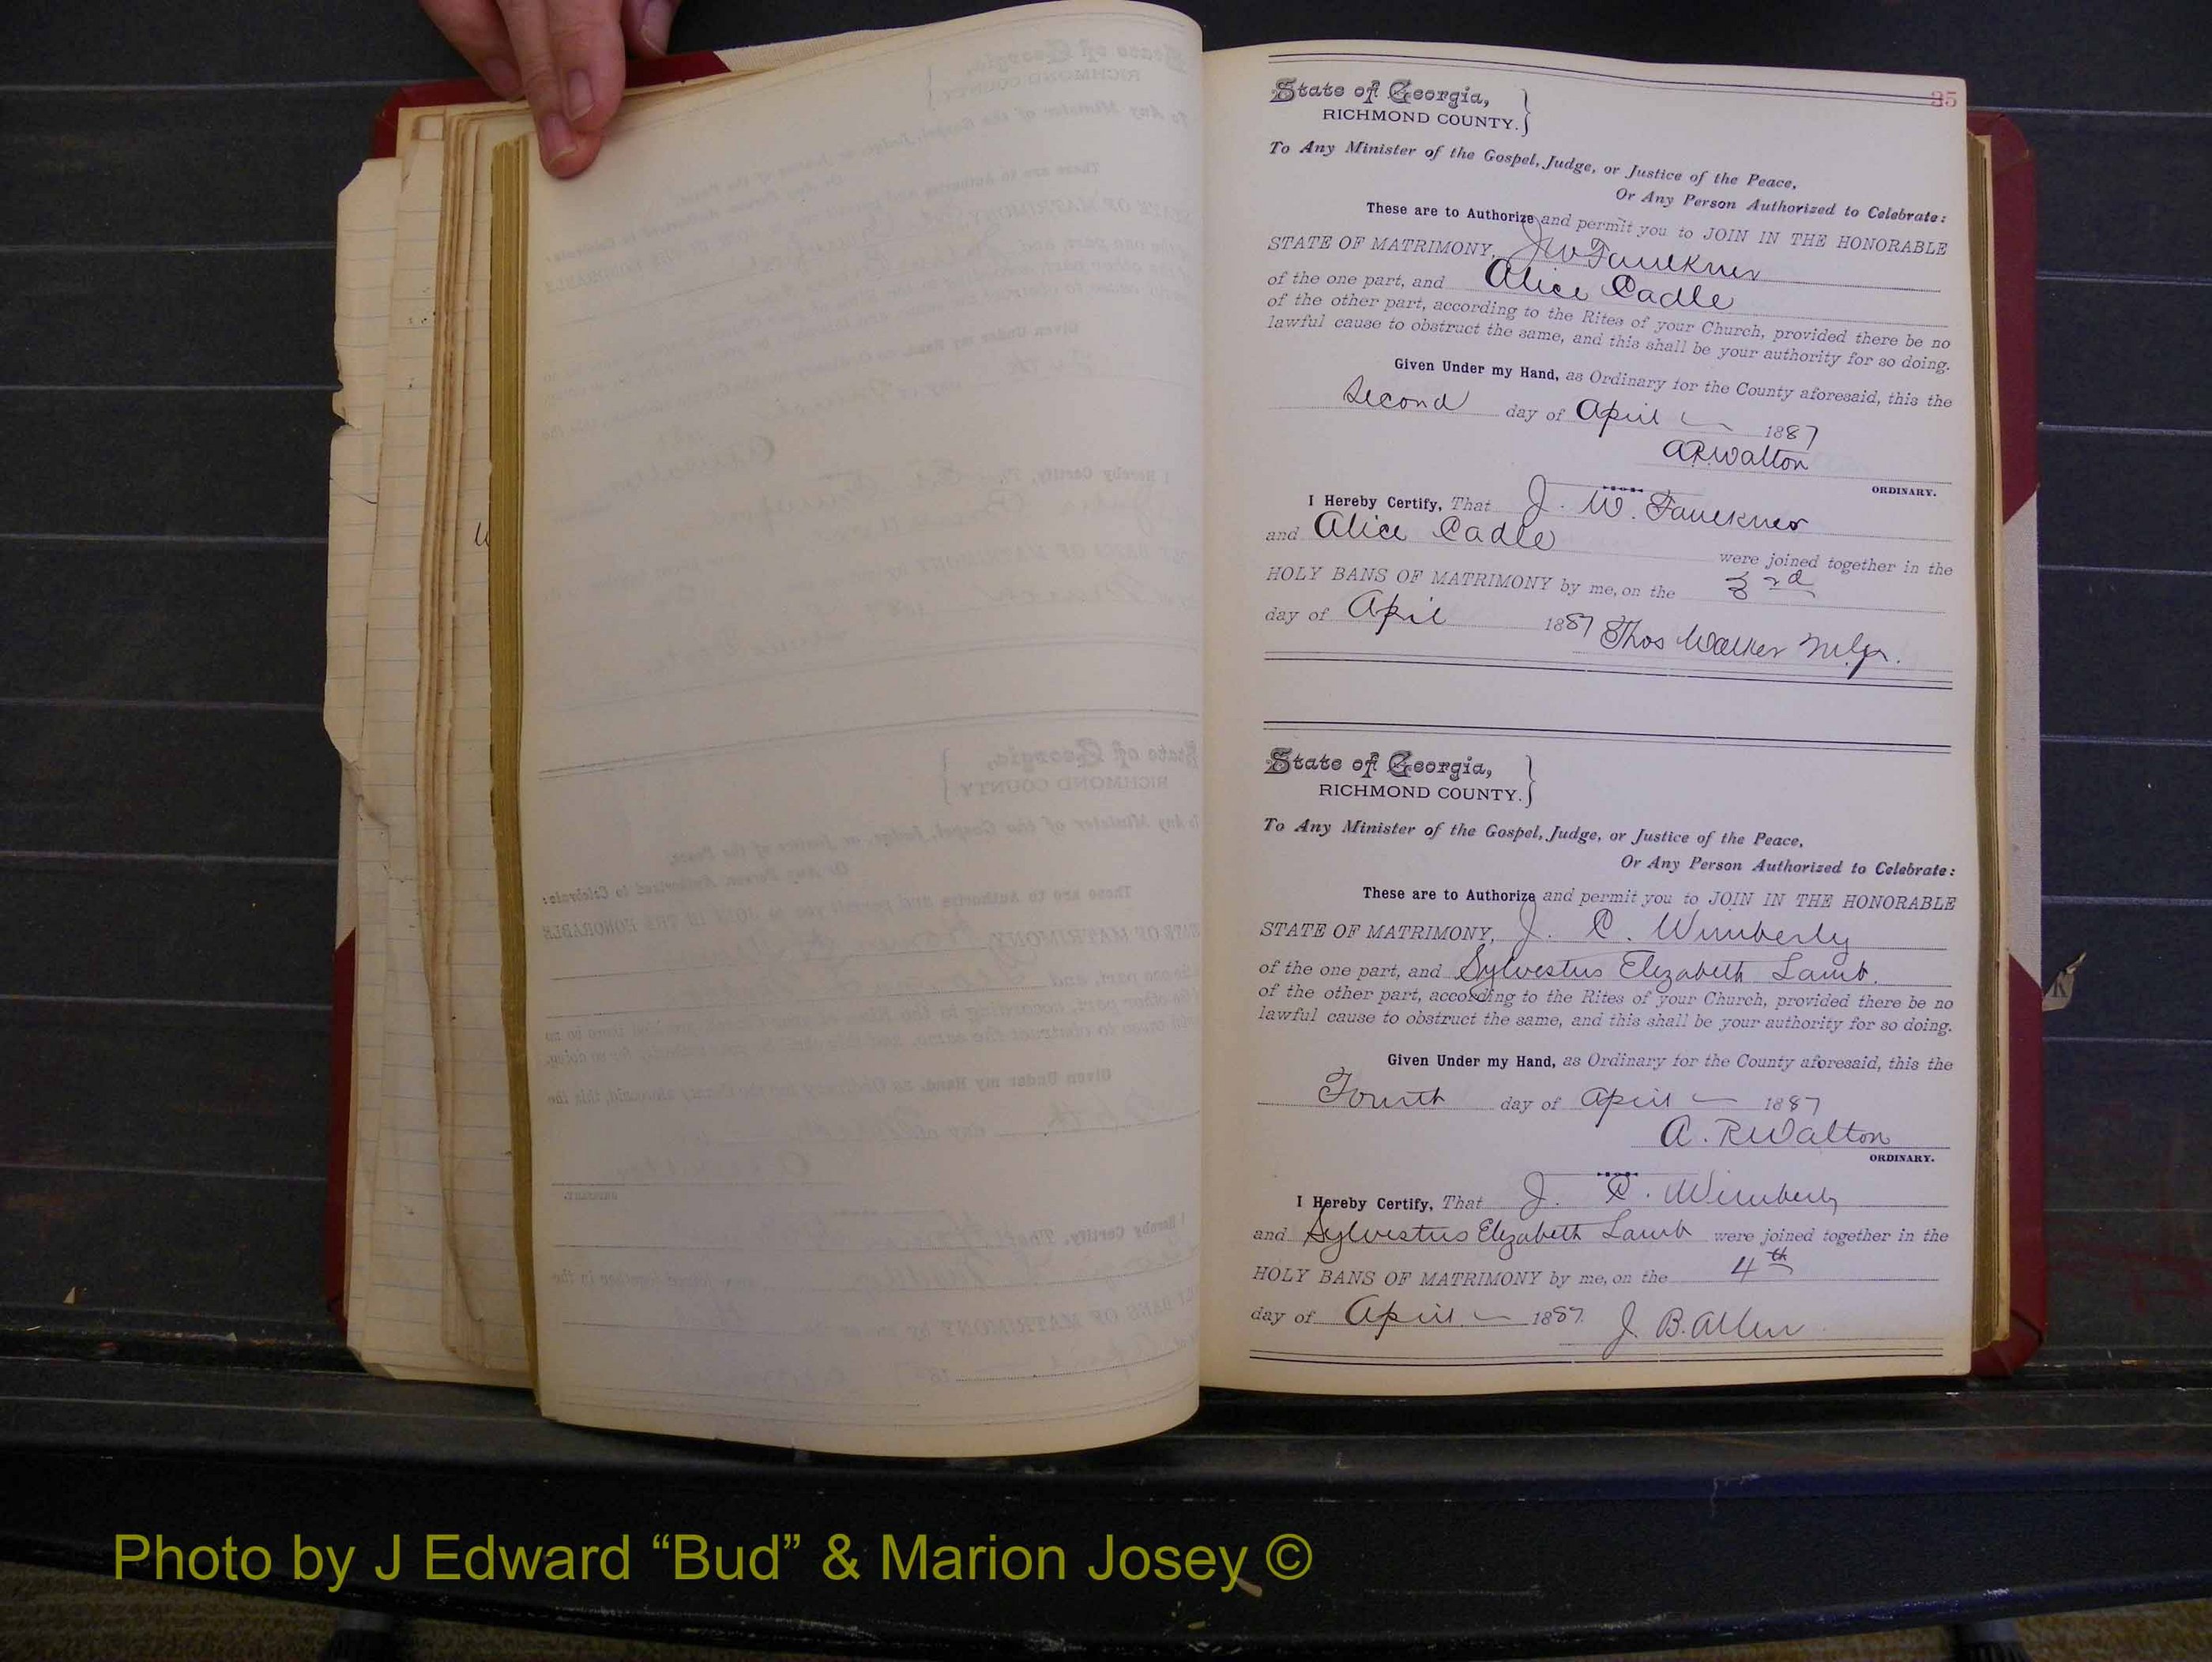 35
State of Georgia,
RICHMOND COUNTY.
To Any Minister of the Gospel, Judge, or Justice of the Peace,
Or Any Person Authorized to Celebrate:
These are to Authorize and permit you to JOIN IN THE HONORABLE
STATE OF MATRIMONY, J W Faulkner
of the one part, and Alice Cadle
of the other part, according to the Rites of your Church, provided there be no
lawful cause to obstruct the same, and this shall be your authority for so doing.
Given Under my Hand, as Ordinary for the County aforesaid, this the
Second day of April 1887
A R Walton
ORDINARY.
I Hereby Certify, That J. W. Faulkner
and Alice Cadle were joined together in the
HOLY BANS OF MATRIMONY by me, on the 3rd
day of April 1887 Thos Walker
State of Georgia,
RICHMOND COUNTY.
To Any Minister of the Gospel, Judge, or Justice of the Peace,
Or Any Person Authorized to Celebrate:
These are to Authorize and permit you to JOIN IN THE HONORABLE
STATE OF MATRIMONY, J. C. Wimberly
of the one part, and Sylvestus Elizabeth Lamb.
of the other part, according to the Rites of your Church, provided there be no
lawful cause to obstruct the same, and this shall be your authority for so doing.
Given Under my Hand, as Ordinary for the County aforesaid, this the
Fourth day of April 1887
A. R Walton
ORDINARY.
I Hereby Certify, That J. C. Wimberly
and Sylvestus Elizabeth Lamb were joined together in the
HOLY BANS OF MATRIMONY by me, on the 4th
day of April 1887. J. B. Allen
Photo by J Edward “Bud” & Marion Josey ©